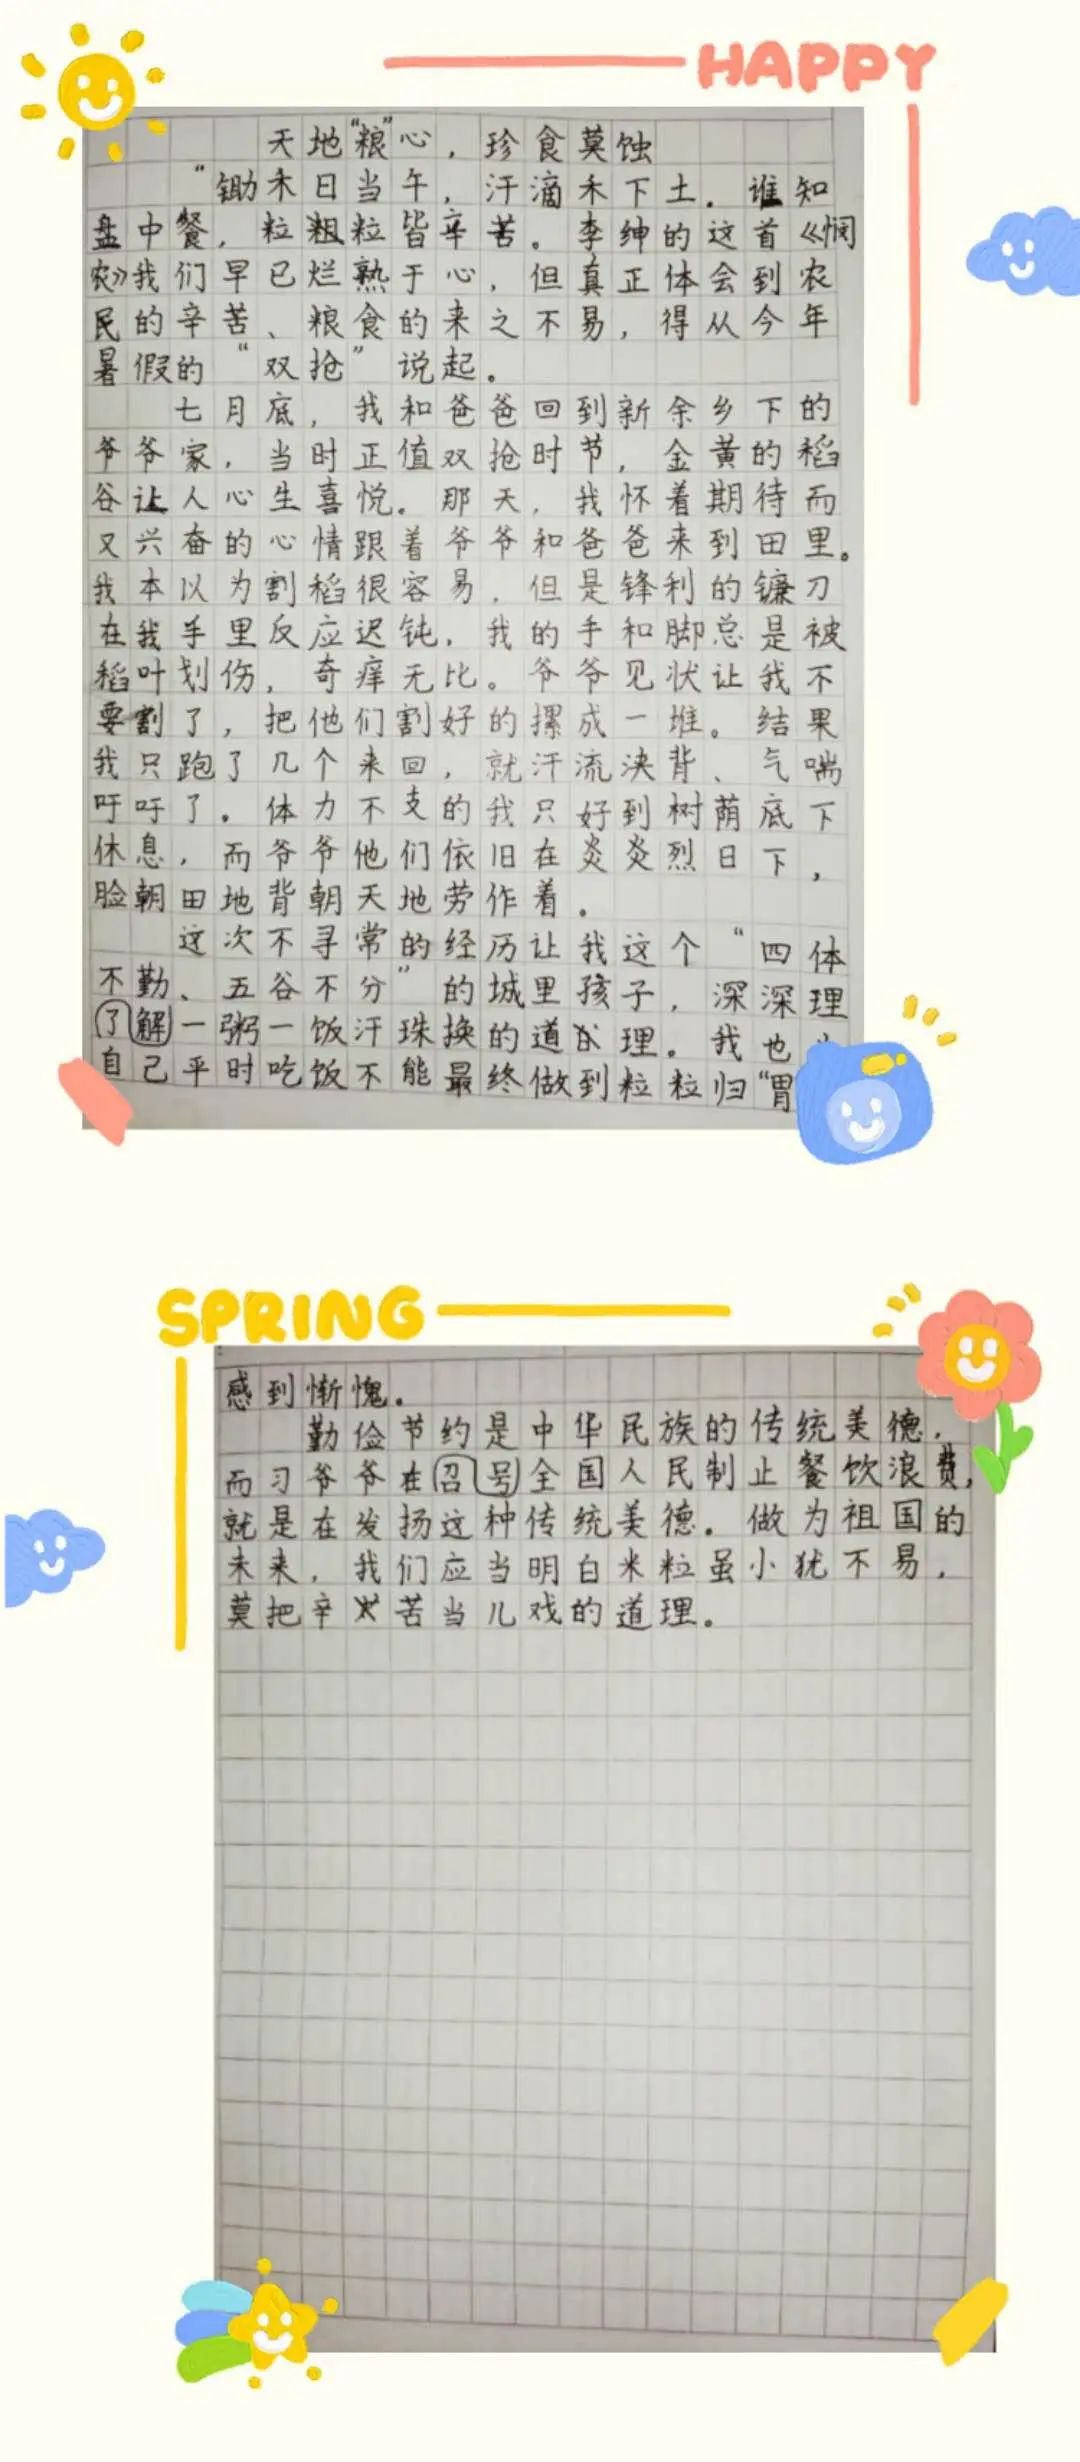 HAPPY
天地“粮”心，珍食莫蚀
“锄禾日当午，汗滴禾下土。谁知
盘中餐，粒粗粒皆辛苦。李绅的这首《悯
农》我们早已烂熟于心，但真正体会到农
民的辛苦、粮食的来之不易，得从今年
暑假的“双抢”说起。
七月底，我和爸爸回到新余乡下的
爷爷家，当时正值双抢时节，金黄的稻
谷让人心生喜悦。那天，我怀着期待而
又兴奋的心情跟着爷爷和爸爸来到田里。
我本以为割稻很容易，但是锋利的镰刀
在我手里反应迟钝，我的手和脚总是被
稻叶划伤，奇痒无比。爷爷见状让我不
要割了，把他们割好的摞成一堆。结果
我只跑了几个来回，就汗流浃背、气喘
吁吁了。体力不支的我只好到树荫底下
休息，而爷爷他们依旧在炎炎烈日下，
脸朝田地背朝天地劳作着。
这次不寻常的经历让我这个“四体
不勤、五谷不分”的城里孩子，深深理
了解一粥一饭汗珠换的道理。我也
自己平时吃饭不能最终做到粒粒归“胃
SPRING
感到惭愧。
勤俭节约是中华民族的传统美德，
而习爷爷在召号全国人民制止餐饮浪费，
就是在发扬这种传统美德。做为祖国的
未来，我们应当明白米粒虽小犹不易，
莫把辛苦当儿戏的道理。